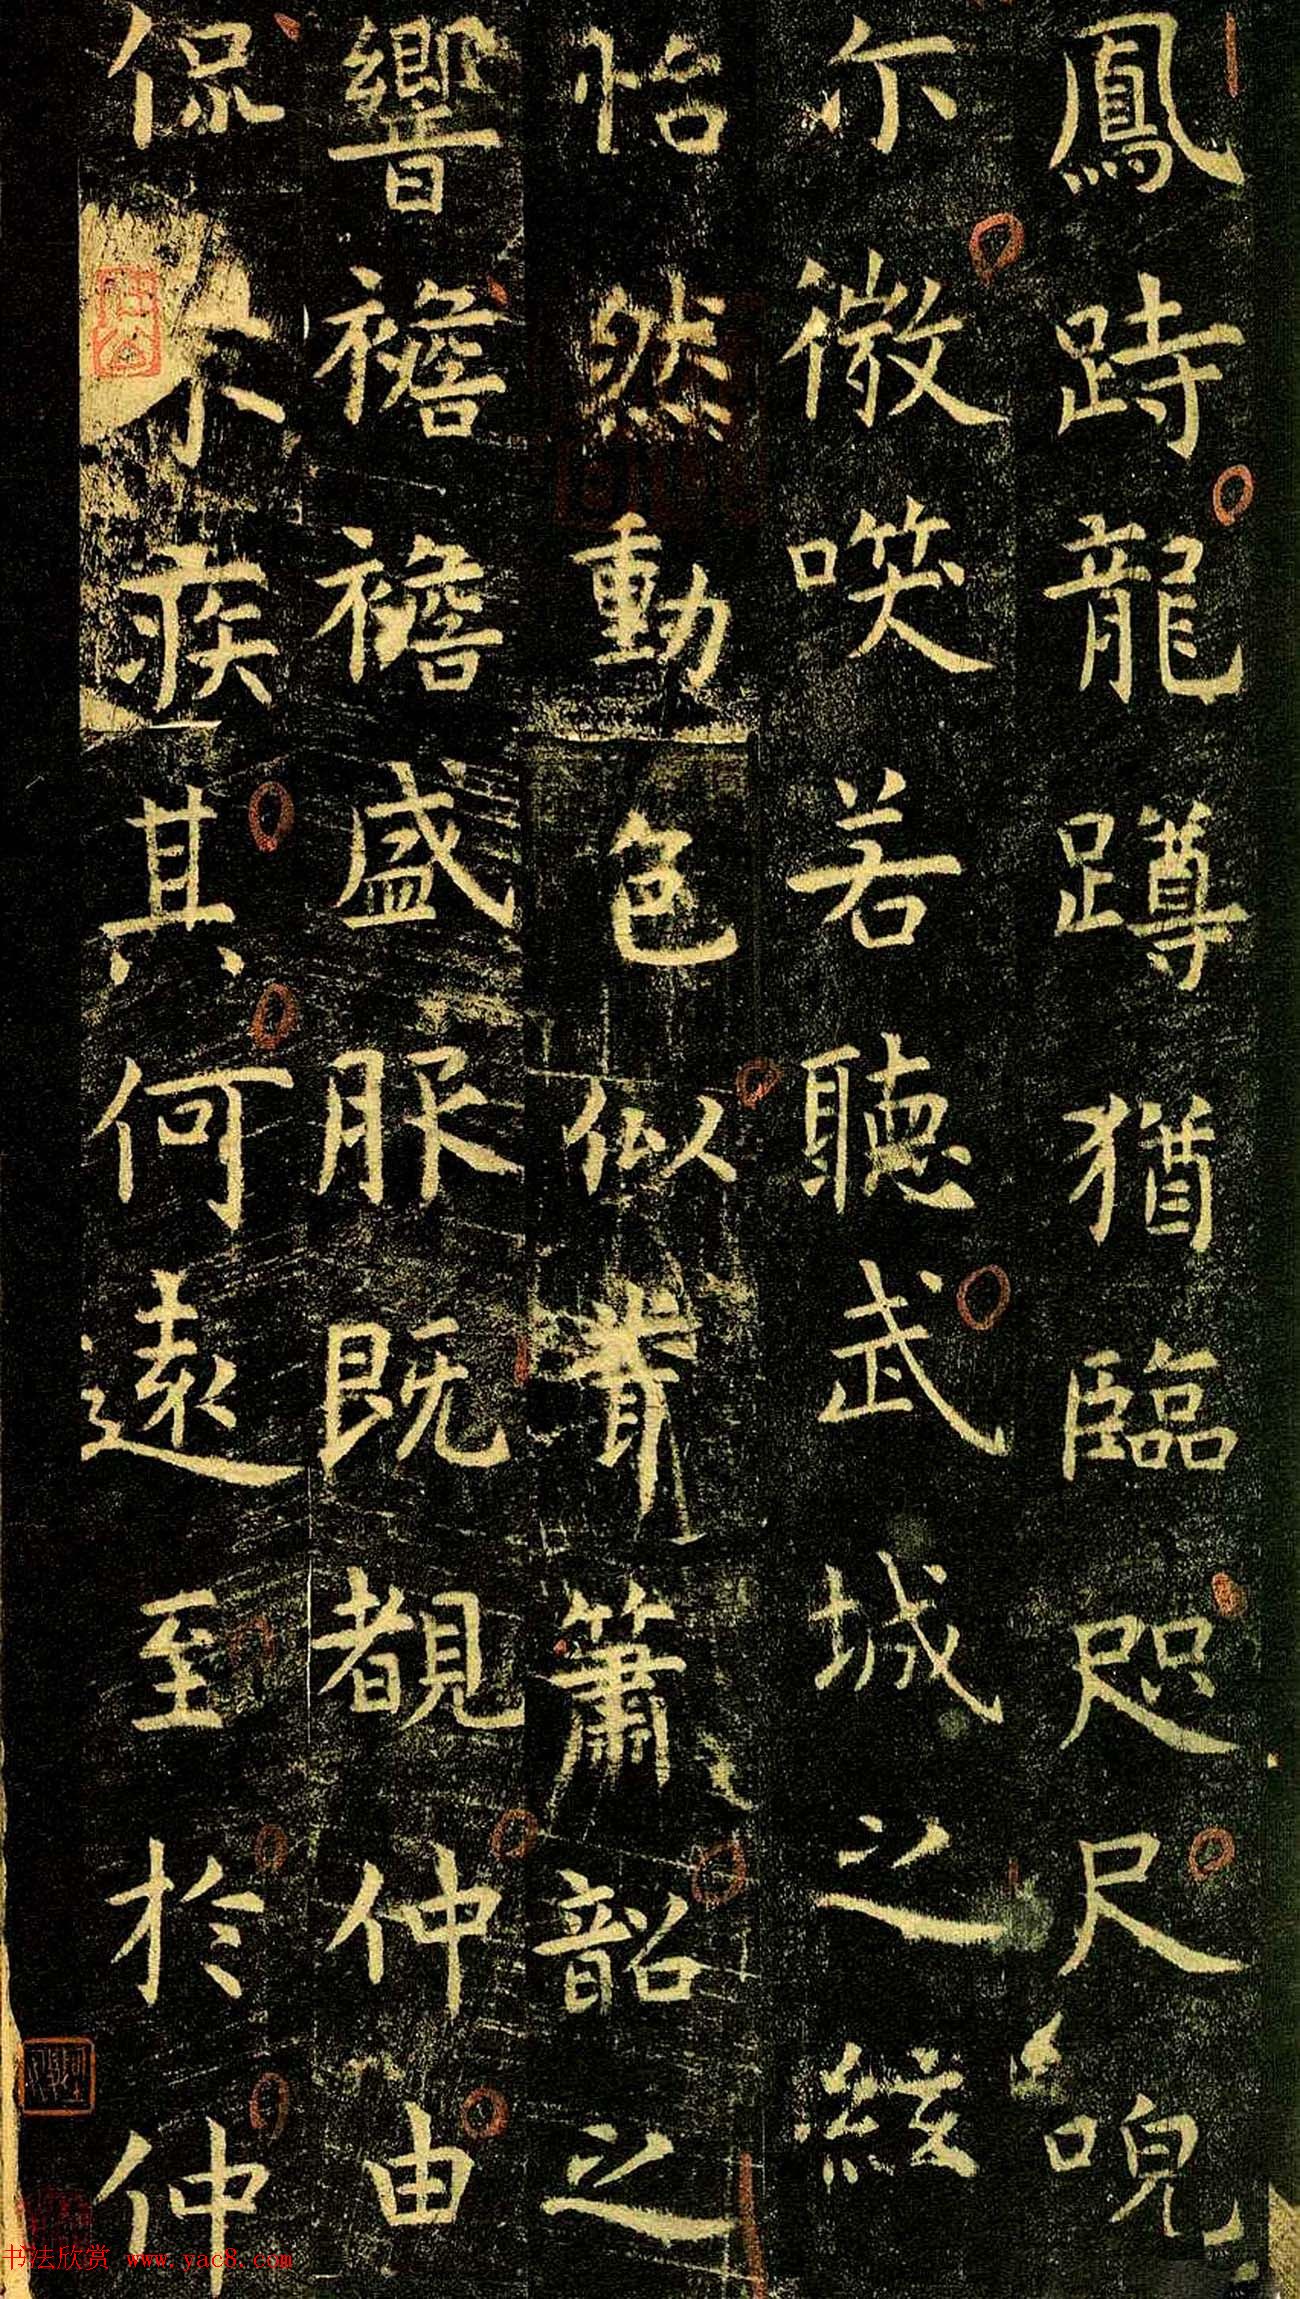 鳳跱龍蹲猶臨咫尺唲
尓微唉若聽武城之絃
怡然動色似聞簫韶之
響襜襜盛服既覩仲由
侃不疾其何遠至於仲
书法欣赏 www.yac8.com